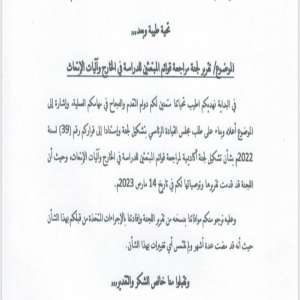 تحية طيبة وبعد,,,
الموضوع/ تقرير لجنة مراجعة قوائم المبتعثين للدراسة في الخارج وآليات الابتعاث
في البداية نهديكم أطيب تحياتنا متمنين لكم دوام التقدم والنجاح في مهامكم العملية، وإشارة إلى
الموضوع أعلاه وبناء على طلب مجلس القيادة الرئاسي بتشكيل لجنة واستنادا إلى قراركم رقم (39) لسنة
2022م بشأن تشكيل لجنة أكاديمية لمراجعة قوائم المبتعثين للدراسة في الخارج وآليات الابتعاث، وحيث أن
اللجنة قد قدمت تقريرها وتوصياتها لكم في تاريخ 14 مارس 2023م.
وعليه نرجو منكم موافاتنا بنسخه من تقرير اللجنة وإفادتنا بالإجراءات المتخذة من قبلكم بهذا الشأن
حيث أنه قد مضت عدة أشهر ولم نلتمس أي تغييرات بهذا الشأن.
وتقبلوا منا خالص الشكر والتقدير,,,